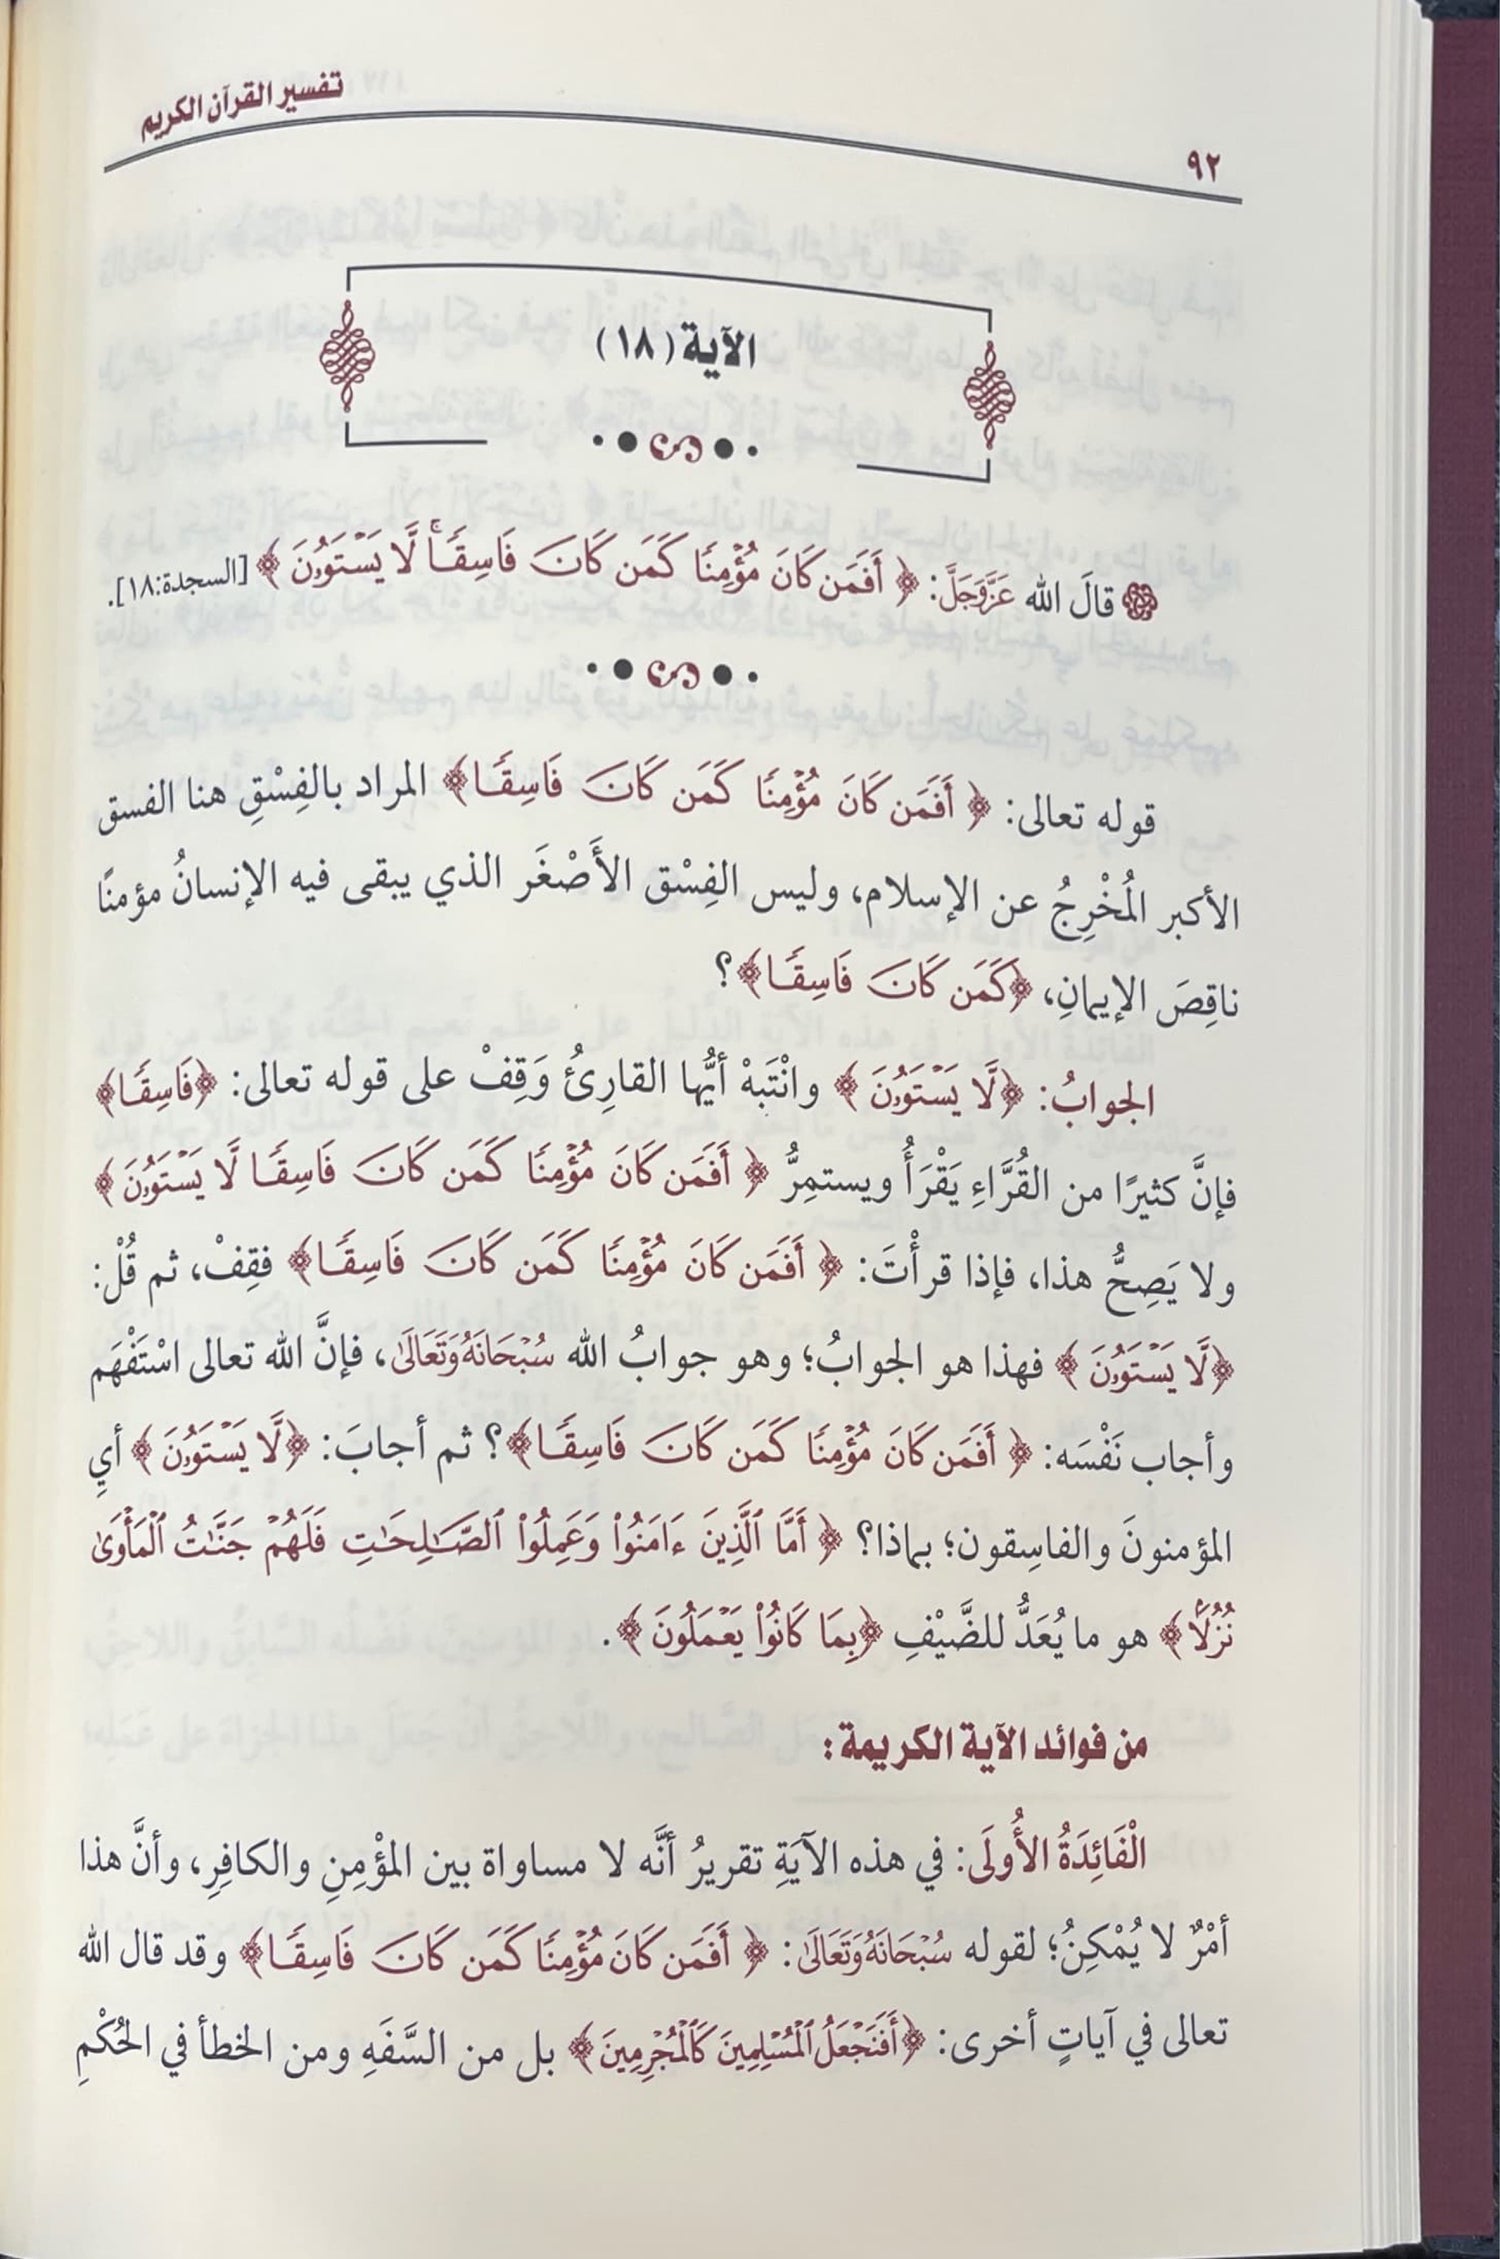 تفسير القرآن الكريم
٩٢
الآية (١٨)
قالَ الله عَزَّوَجَلَّ: ﴿ أَفَمَن كَانَ مُؤْمِنًا كَمَن كَانَ فَاسِقًا ۚ لَّا يَسْتَوُونَ ﴾ [السجدة:١٨].
قوله تعالى: ﴿ أَفَمَن كَانَ مُؤْمِنًا كَمَن كَانَ فَاسِقًا﴾ المراد بالفِسْقِ هنا الفسق
الأكبر المُخْرِجُ عن الإسلام، وليس الفِسْق الأَصْغَر الذي يبقى فيه الإنسانُ مؤمنًا
ناقِصَ الإيمانِ، ﴿كَمَن كَانَ فَاسِقًا﴾؟
الجوابُ: ﴿لَّا يَسْتَوُونَ ﴾ وانْتَبِهْ أيُّها القارِئُ وَقِفْ على قوله تعالى: ﴿فَاسِقًا﴾
فإنَّ كثيرًا من القُرَّاءِ يَقْرَأُ ويستمِرُّ ﴿ أَفَمَن كَانَ مُؤْمِنًا كَمَن كَانَ فَاسِقًا لَّا يَسْتَوُونَ ﴾
ولا يَصِحُّ هذا، فإذا قرأْتَ: ﴿ أَفَمَن كَانَ مُؤْمِنًا كَمَن كَانَ فَاسِقًا﴾ فقِفْ، ثم قُلْ:
﴿لَّا يَسْتَوُونَ ﴾ فهذا هو الجوابُ؛ وهو جوابُ الله سُبْحَانَهُ وَتَعَالَى، فإنَّ الله تعالى اسْتَفْهَم
وأجاب نَفْسَه: ﴿ أَفَمَن كَانَ مُؤْمِنًا كَمَن كَانَ فَاسِقًا﴾؟ ثم أجابَ: ﴿لَّا يَسْتَوُونَ ﴾ أيِ
المؤمنونَ والفاسِقون؛ بماذا؟ ﴿ أَمَّا ٱلَّذِينَ ءَامَنُوا۟ وَعَمِلُوا۟ ٱلصَّـٰلِحَـٰتِ فَلَهُمْ جَنَّـٰتُ ٱلْمَأْوَىٰ
نُزُلًۢا﴾ هو ما يُعَدُّ للضَّيْفِ ﴿بِمَا كَانُوا۟ يَعْمَلُونَ ﴾.
من فوائد الآية الكريمة:
الْفَائِدَةُ الأُولَى: في هذه الآيَةِ تقريرُ أنَّه لا مساواة بين المؤْمِنِ والكافِرِ، وأنَّ هذا
أمْرٌ لا يُمْكِنُ؛ لقوله سُبْحَانَهُ وَتَعَالَى: ﴿ أَفَمَن كَانَ مُؤْمِنًا كَمَن كَانَ فَاسِقًا﴾ وقد قال الله
تعالى في آياتٍ أخرى: ﴿أَفَنَجْعَلُ ٱلْمُسْلِمِينَ كَٱلْمُجْرِمِينَ﴾ بل من السَّفَهِ ومن الخطأ في الحُكْمِ